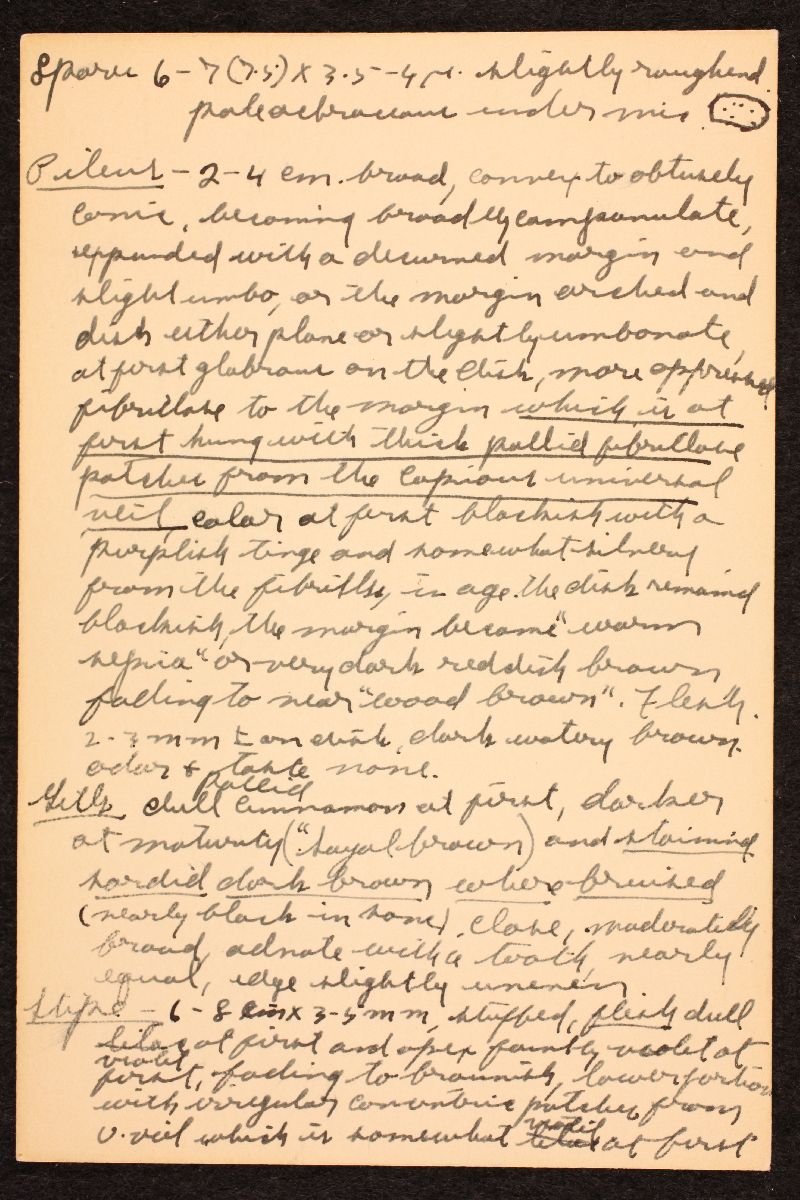 Spores 6-7(7.5) x 3.5-4 µ. slightly roughend
pale ochraceous under mic.
Pileus - 2-4 cm. broad, convex to obtusely
conic, becoming broadly campanulate,
expanded with a decurved margin and
slight umbo, or the margin arched and
disk either plane or slightly umbonate,
at first glabrous on the disk, more appressed
fibrillose to the margin which is at
first hung with thick pallid fibrillose
patches from the copious universal
veil, color at first blackish with a
purplish tinge and somewhat silvery
from the fibrills, in age the disk remained
blackish, the margin became "warm
sepia" or very dark reddish brown
fading to near "wood brown". Flesh.
2-3 mm ± on disk, dark watery brown.
odor & taste none.
pallid
Gills dull cinnamon at first, darker
at maturity ("sayal brown) and staining
sordid dark brown where bruised
(nearly black in some). Close, moderately
broad, adnate with a tooth, nearly
equal, edge slightly uneven
Stipe - 6-8 cm x 3-5 mm, stuffed, flesh dull
lilac at first and apex faintly violet at
violet
first, fading to brownish, lower portion
with irregular concentric patches from
violet
u. veil which is somewhat lilac at first